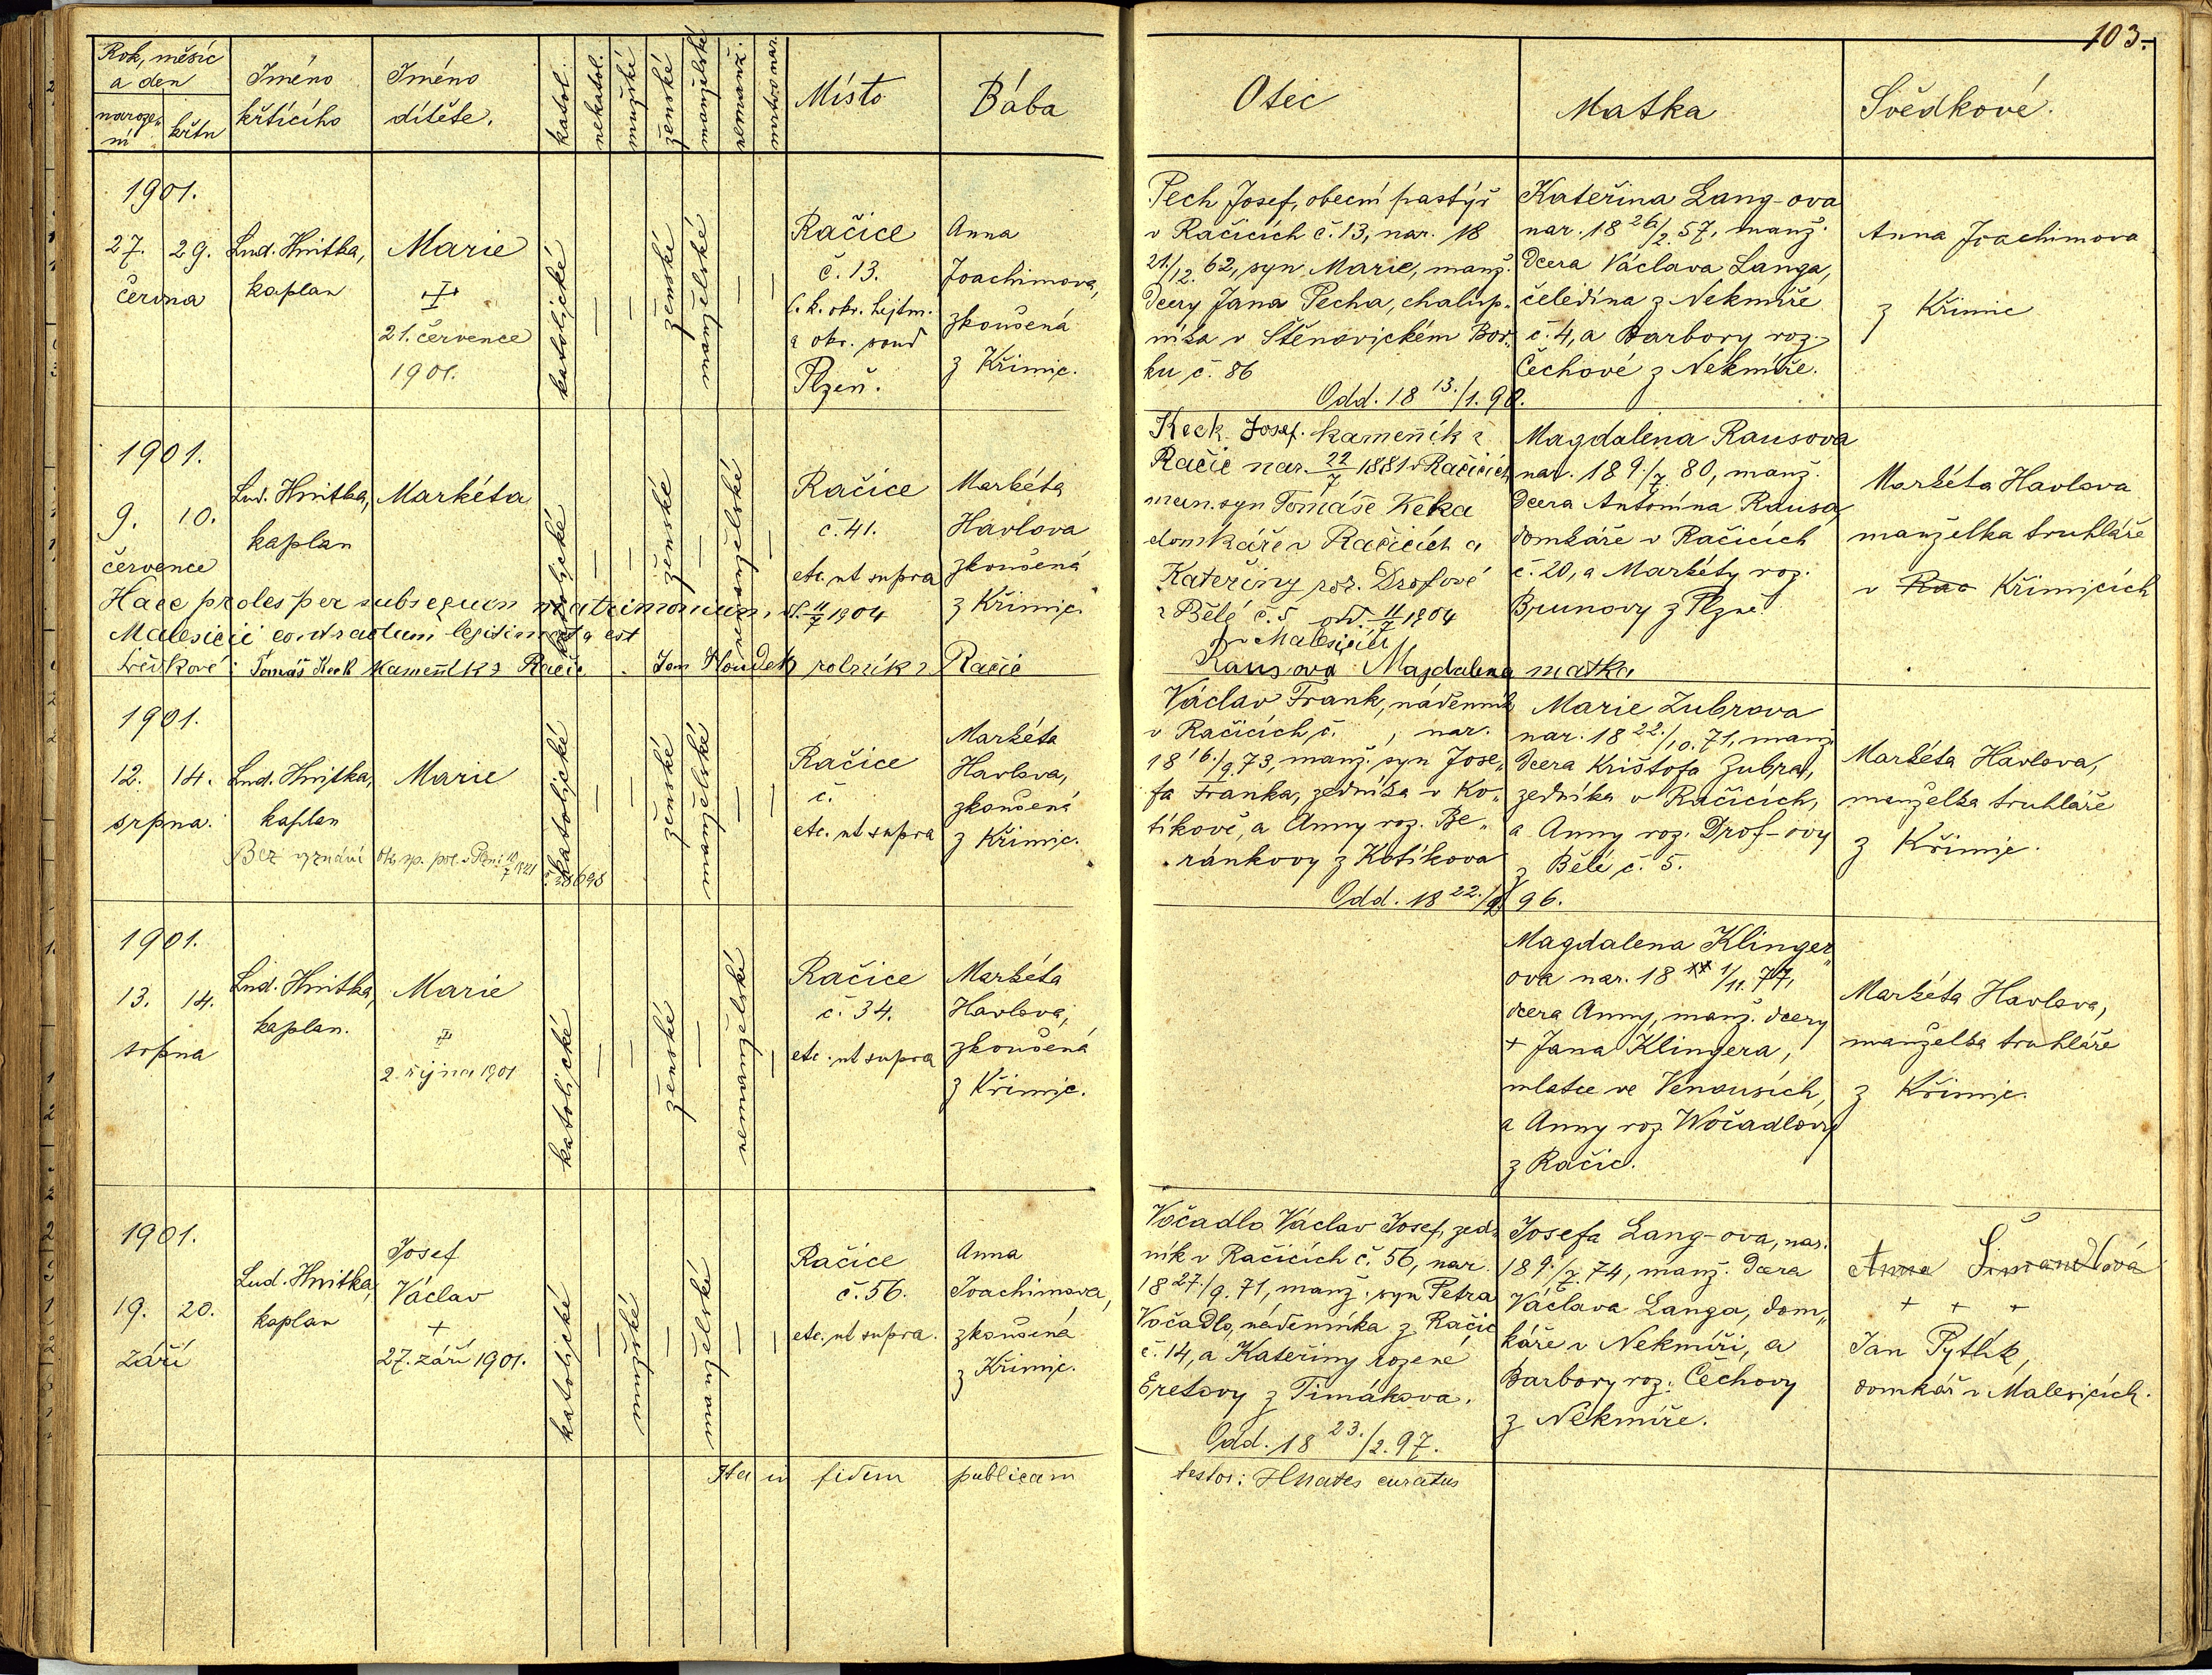 103.
Rok, měsíc
a den
naroze„
ní
křtu
Jméno
křtícího
Jméno
dítěte.
katol.
nekatol.
mužské
ženské
manželské
nemanž.
mrtvo nar.
Místo
Bába
Otec
Matka
Svědkové.
1901.
27. 29.
června
Lud. Hnitka,
kaplan
Marie
21. července
1901.
katolické
—
—
ženské
manželské
—
—
Račice
č. 13.
C. k. okr. hejtm.
a okr. soud
Plzeň.
Anna
Joachimova,
zkoušená
z Křimic.
Pech Josef, obecní pastýř
v Račicích č. 13, nar. 18
21./12. 62, syn Marie, manž.
dcery Jana Pecha, chalup„
níka v Štěnovickém Bor„
ku č. 86
Odd. 18 13./1. 90.
Kateřina Lang-ova
nar. 18 26/2. 57, manž.
dcera Václava Langa,
čeledína z Nekmíře
č. 4, a Barbory roz.
Čechové z Nekmíře.
Anna Joachimova
z Křimic
1901.
9. 10.
července
Lud. Hnitka,
kaplan
Markéta
katolické
—
—
ženské
—
nemanželské
—
Račice
č. 41.
etc. ut supra
Markéta
Havlova
zkoušená
z Křimic.
Keck Josef. kameník z
Račic nar. 22/7 1881 v Račicích
man. syn Tomáše Keka
domkáře v Račicích a
Kateřiny roz. Drofové
z Bělé č. 5 odd. 11/7 1904
v Malesicích
Magdalena Rausova
nar. 18 9./7. 80, manž.
dcera Antonína Rausa,
domkáře v Račicích
č. 20, a Markéty roz.
Brunovy z Plzně
Markéta Havlova
manželka truhláře
v Rač Křimicích
Haec proles per subsequen matrimonium, d. 11/7 1904
Malesicii contractum legitimata est
Svědkové: Tomáš Keck kameník z Račic. Jan Houdek rolník z Račic
Rausova Magdalena matka
1901.
12. 14.
srpna.
Lud. Hnitka,
kaplan
Marie
Bez vyznání Okr. sp. pol. v Plzni 10/7 1921 č. 38698
katolické
—
—
ženské
manželské
—
—
Račice
č.
etc. ut supra
Markéta
Havlova,
zkoušená
z Křimic.
Václav Frank, nádeník
v Račicích č. , nar.
18 16./9. 73, manž. syn Jose„
fa Franka, zedníka v Ko„
tíkově, a Anny roz. Be„
ránkovy z Kotíkova
Odd. 18 22./9. 96.
Marie Zubrova
nar. 18 22./10. 71, manž.
dcera Krištofa Zubra,
zedníka v Račicích,
a Anny roz. Drof-ovy
z Bělé č. 5.
Markéta Havlova,
manželka truhláře
z Křimic.
1901.
13. 14.
srpna
Lud. Hnitka,
kaplan.
Marie
2. října 1901
katolické
—
—
ženské
—
nemanželské
—
Račice
č. 34.
etc. ut supra
Markéta
Havlova,
zkoušená
z Křimic.
Magdalena Klinger„
ova nar. 18 1/11. 77,
dcera Anny, manž. dcery
+ Jana Klingera,
mlatce ve Venousích,
a Anny roz. Wočadlovy
z Račic.
Markéta Havlova,
manželka truhláře
z Křimic.
1901.
19. 20.
září
Lud. Hnitka,
kaplan
Josef
Václav
+
27. září 1901.
katolické
—
mužské
—
manželské
—
—
Račice
č. 56.
etc. ut supra.
Anna
Joachimova,
zkoušená
z Křimic.
Vočadlo Václav Josef, zed„
ník v Račicích č. 56, nar.
18 27./9. 71, manž. syn Petra
Vočadlo, nádenníka z Račic
č. 14, a Kateřiny rozené
Eretovy z Timákova.
Odd. 18 23./2. 97.
Josefa Lang-ova, nar.
18 9./7. 74, manž. dcera
Václava Langa, dom„
káře v Nekmíři, a
Barbory roz. Čechovy
z Nekmíře.
Anna Šimandlová
+ + +
Jan Pytlík,
domkář v Malesicích.
Ita in fidem publicam
testor: Hnates curatus